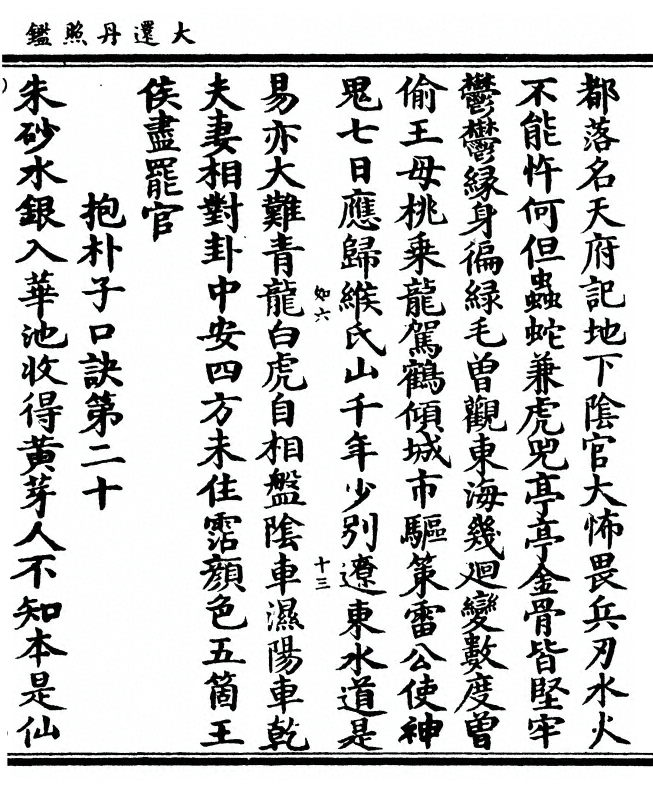 大還丹照鑑
都落名天府記地下陰官大怖畏兵刃水火
不能忤何但蟲蛇兼虎兕亭亭金骨皆堅牢
鬱鬱緑身徧緑毛曾觀東海幾迴變數度曾
偷王母桃乗龍駕鶴傾城市驅策雷公使神
鬼七日應歸緱氏山千年少别遼東水道是
如六
十三
易亦大難青龍白虎自相盤陰車濕陽車乾
夫妻相對卦中安四方未住霑顔色五箇王
侯盡罷官
抱朴子口訣第二十
朱砂水銀入華池收得黄芽人不知本是仙